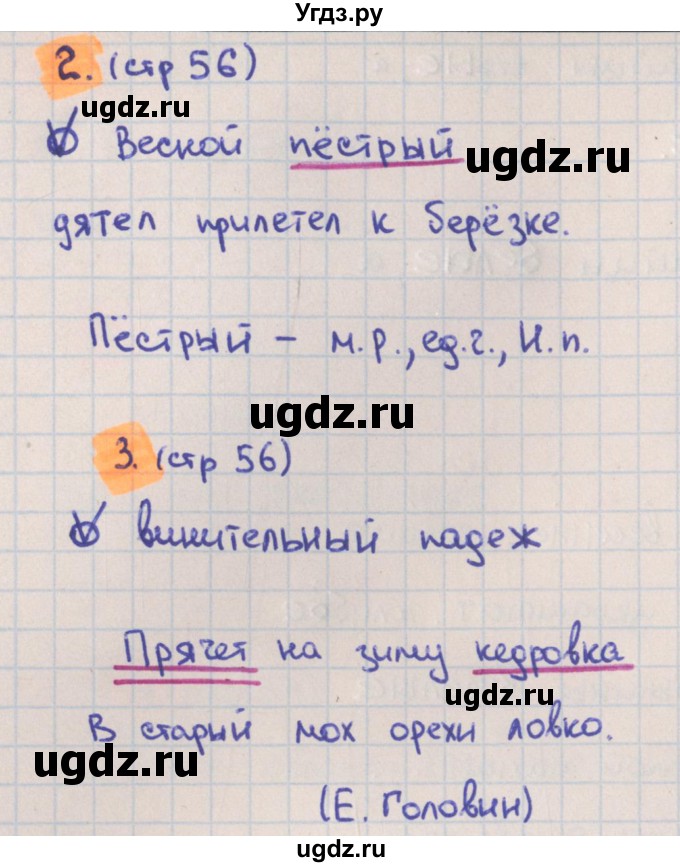 Угдз.ру
2. (стр 56)
ugdz.ru
Весной пёстрый
ugdz.ru
дятел прилетел к берёзке.
Пёстрый – м.р., ед.ч., И.п.
ugdz.ru
3. (стр 56)
винительный падеж
Прячет на зиму кедровка
ugdz.ru
В старый мох орехи ловко.
ugdz.ru
(Е. Головин)
ugdz.ru